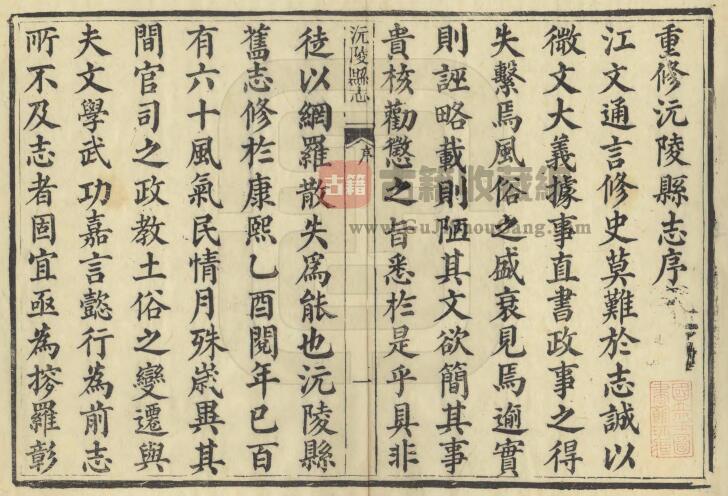 重修沅陵縣志序
江文通言修史莫難於志誠以
微文大義據事直書政事之得
失繫焉風俗之盛衰見焉逾實
則誣略載則陋其文欲簡其事
貴核勸懲之旨悉於是乎具非
沅陵縣志
序
一
徒以網羅散失爲能也沅陵縣
舊志修於康熙乙酉閱年已百
有六十風氣民情月殊嵗異其
間官司之政教土俗之變遷與
夫文學武功嘉言懿行為前志
所不及志者固宜亟為搜羅彰
古籍
古籍收藏網